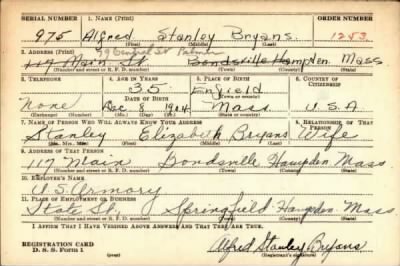 SERIAL NUMBER 1. NAME (Print) ORDER NUMBER
975 Alfred Stanley Bryans 1253
(First) (Middle) (Last)
2. ADDRESS (Print) 29 Central St Palmer
117 Main St. Bondsville Hampden Mass
(Number and street or R. F. D. number) (Town) (County) (State)
3. TELEPHONE 4. AGE IN YEARS 5. PLACE OF BIRTH 6. COUNTRY OF CITIZENSHIP
35 Enfield
None DATE OF BIRTH (Town or county)
Dec 8 1904 Mass. U.S.A
(Exchange) (Number) (Mo.) (Day) (Yr.) (State or country)
7. NAME OF PERSON WHO WILL ALWAYS KNOW YOUR ADDRESS 8. RELATIONSHIP OF THAT PERSON
Stanley Elizabeth Bryans Wife
(Mr., Mrs., Miss) (First) (Middle) (Last)
9. ADDRESS OF THAT PERSON
117 Main Bondsville Hampden Mass
(Number and street or R. F. D. number) (Town) (County) (State)
10. EMPLOYER'S NAME
U.S. Armory
11. PLACE OF EMPLOYMENT OR BUSINESS
State St. Springfield Hampden Mass
(Number and street or R. F. D. number) (Town) (County) (State)
I AFFIRM THAT I HAVE VERIFIED ABOVE ANSWERS AND THAT THEY ARE TRUE.
REGISTRATION CARD
D. S. S. Form 1 Alfred Stanley Bryans
(over) (Registrant's signature)